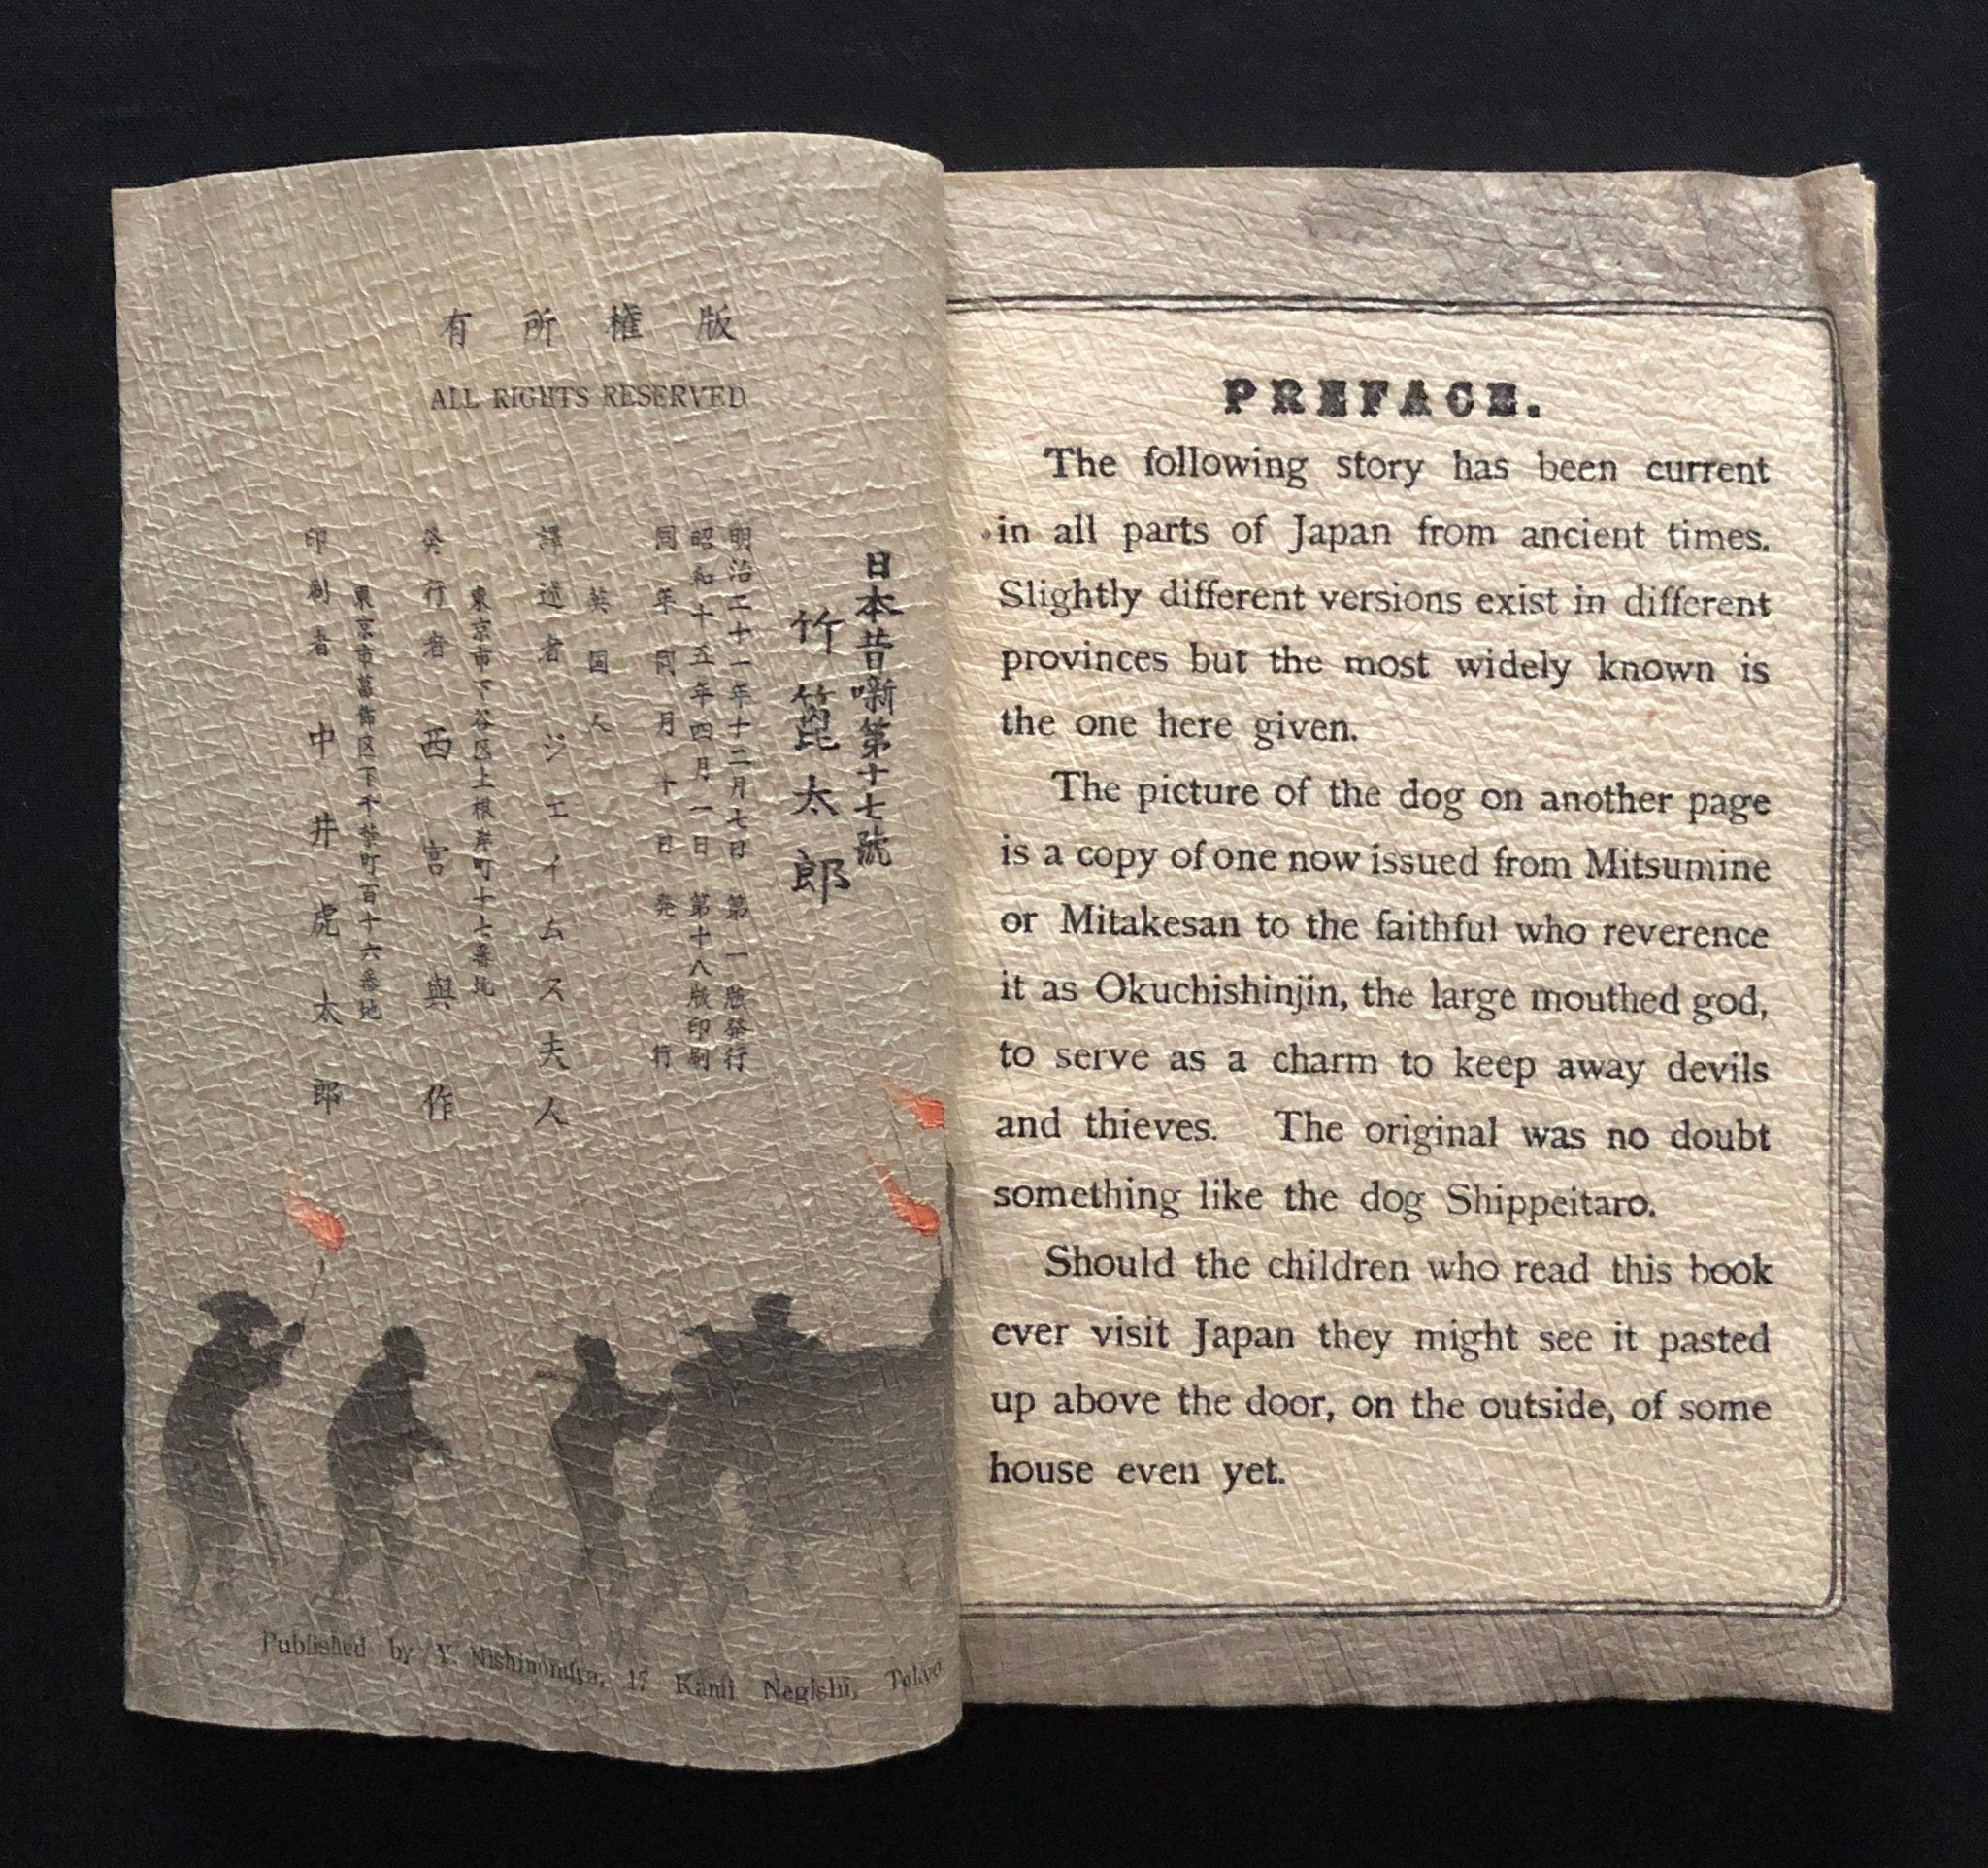 有所權版
ALL RIGHTS RESERVED
日本昔噺第十七號
竹箆太郎
明治二十一年十二月七日 第一版發行
昭和十五年四月一日 第十八版印刷
同年同月十日発行
英国人
譯述者 ジエイムス夫人
東京市下谷区上根岸町十七番地
発行者 西宮與作
東京市葛飾区下千葉町百十六番地
印刷者 中井虎太郎
Published by Y. Nishinomiya, 17 Kami Negishi, Tokyo
PREFACE.
The following story has been current
in all parts of Japan from ancient times.
Slightly different versions exist in different
provinces but the most widely known is
the one here given.
The picture of the dog on another page
is a copy of one now issued from Mitsumine
or Mitakesan to the faithful who reverence
it as Okuchishinjin, the large mouthed god,
to serve as a charm to keep away devils
and thieves. The original was no doubt
something like the dog Shippeitaro.
Should the children who read this book
ever visit Japan they might see it pasted
up above the door, on the outside, of some
house even yet.